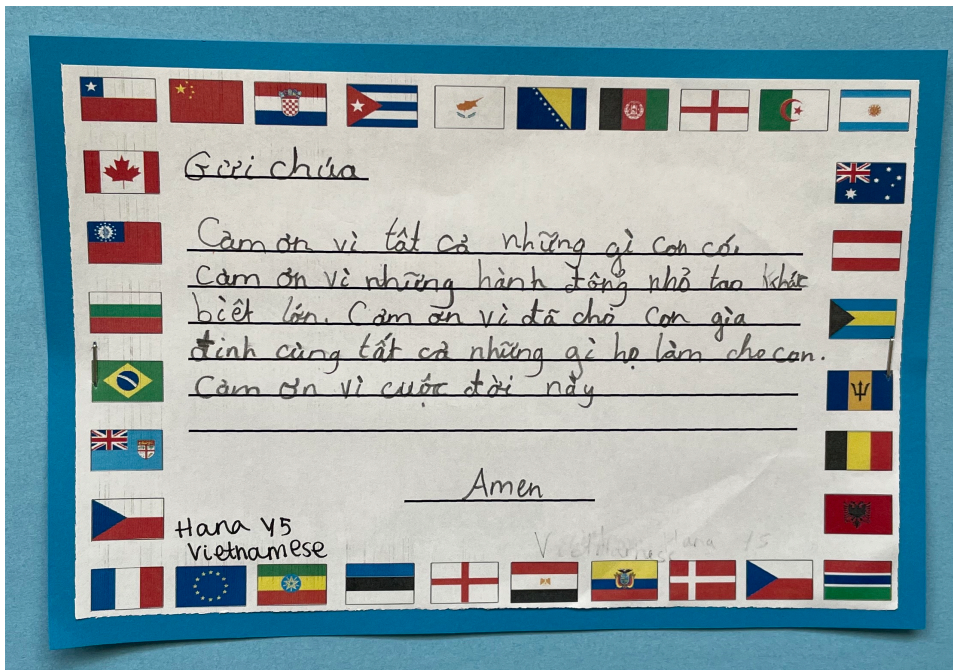 Gửi chúa
Cảm ơn vì tất cả những gì con có.
Cảm ơn vì những hành động nhỏ tạo khác
biệt lớn. Cảm ơn vì đã chỏ con gìa
đinh cùng tất cả những gì họ làm cho con.
Cảm ơn vì cuộc đời này
Amen
Hana Y5
Vietnamese
Vietnamese Hana Y5